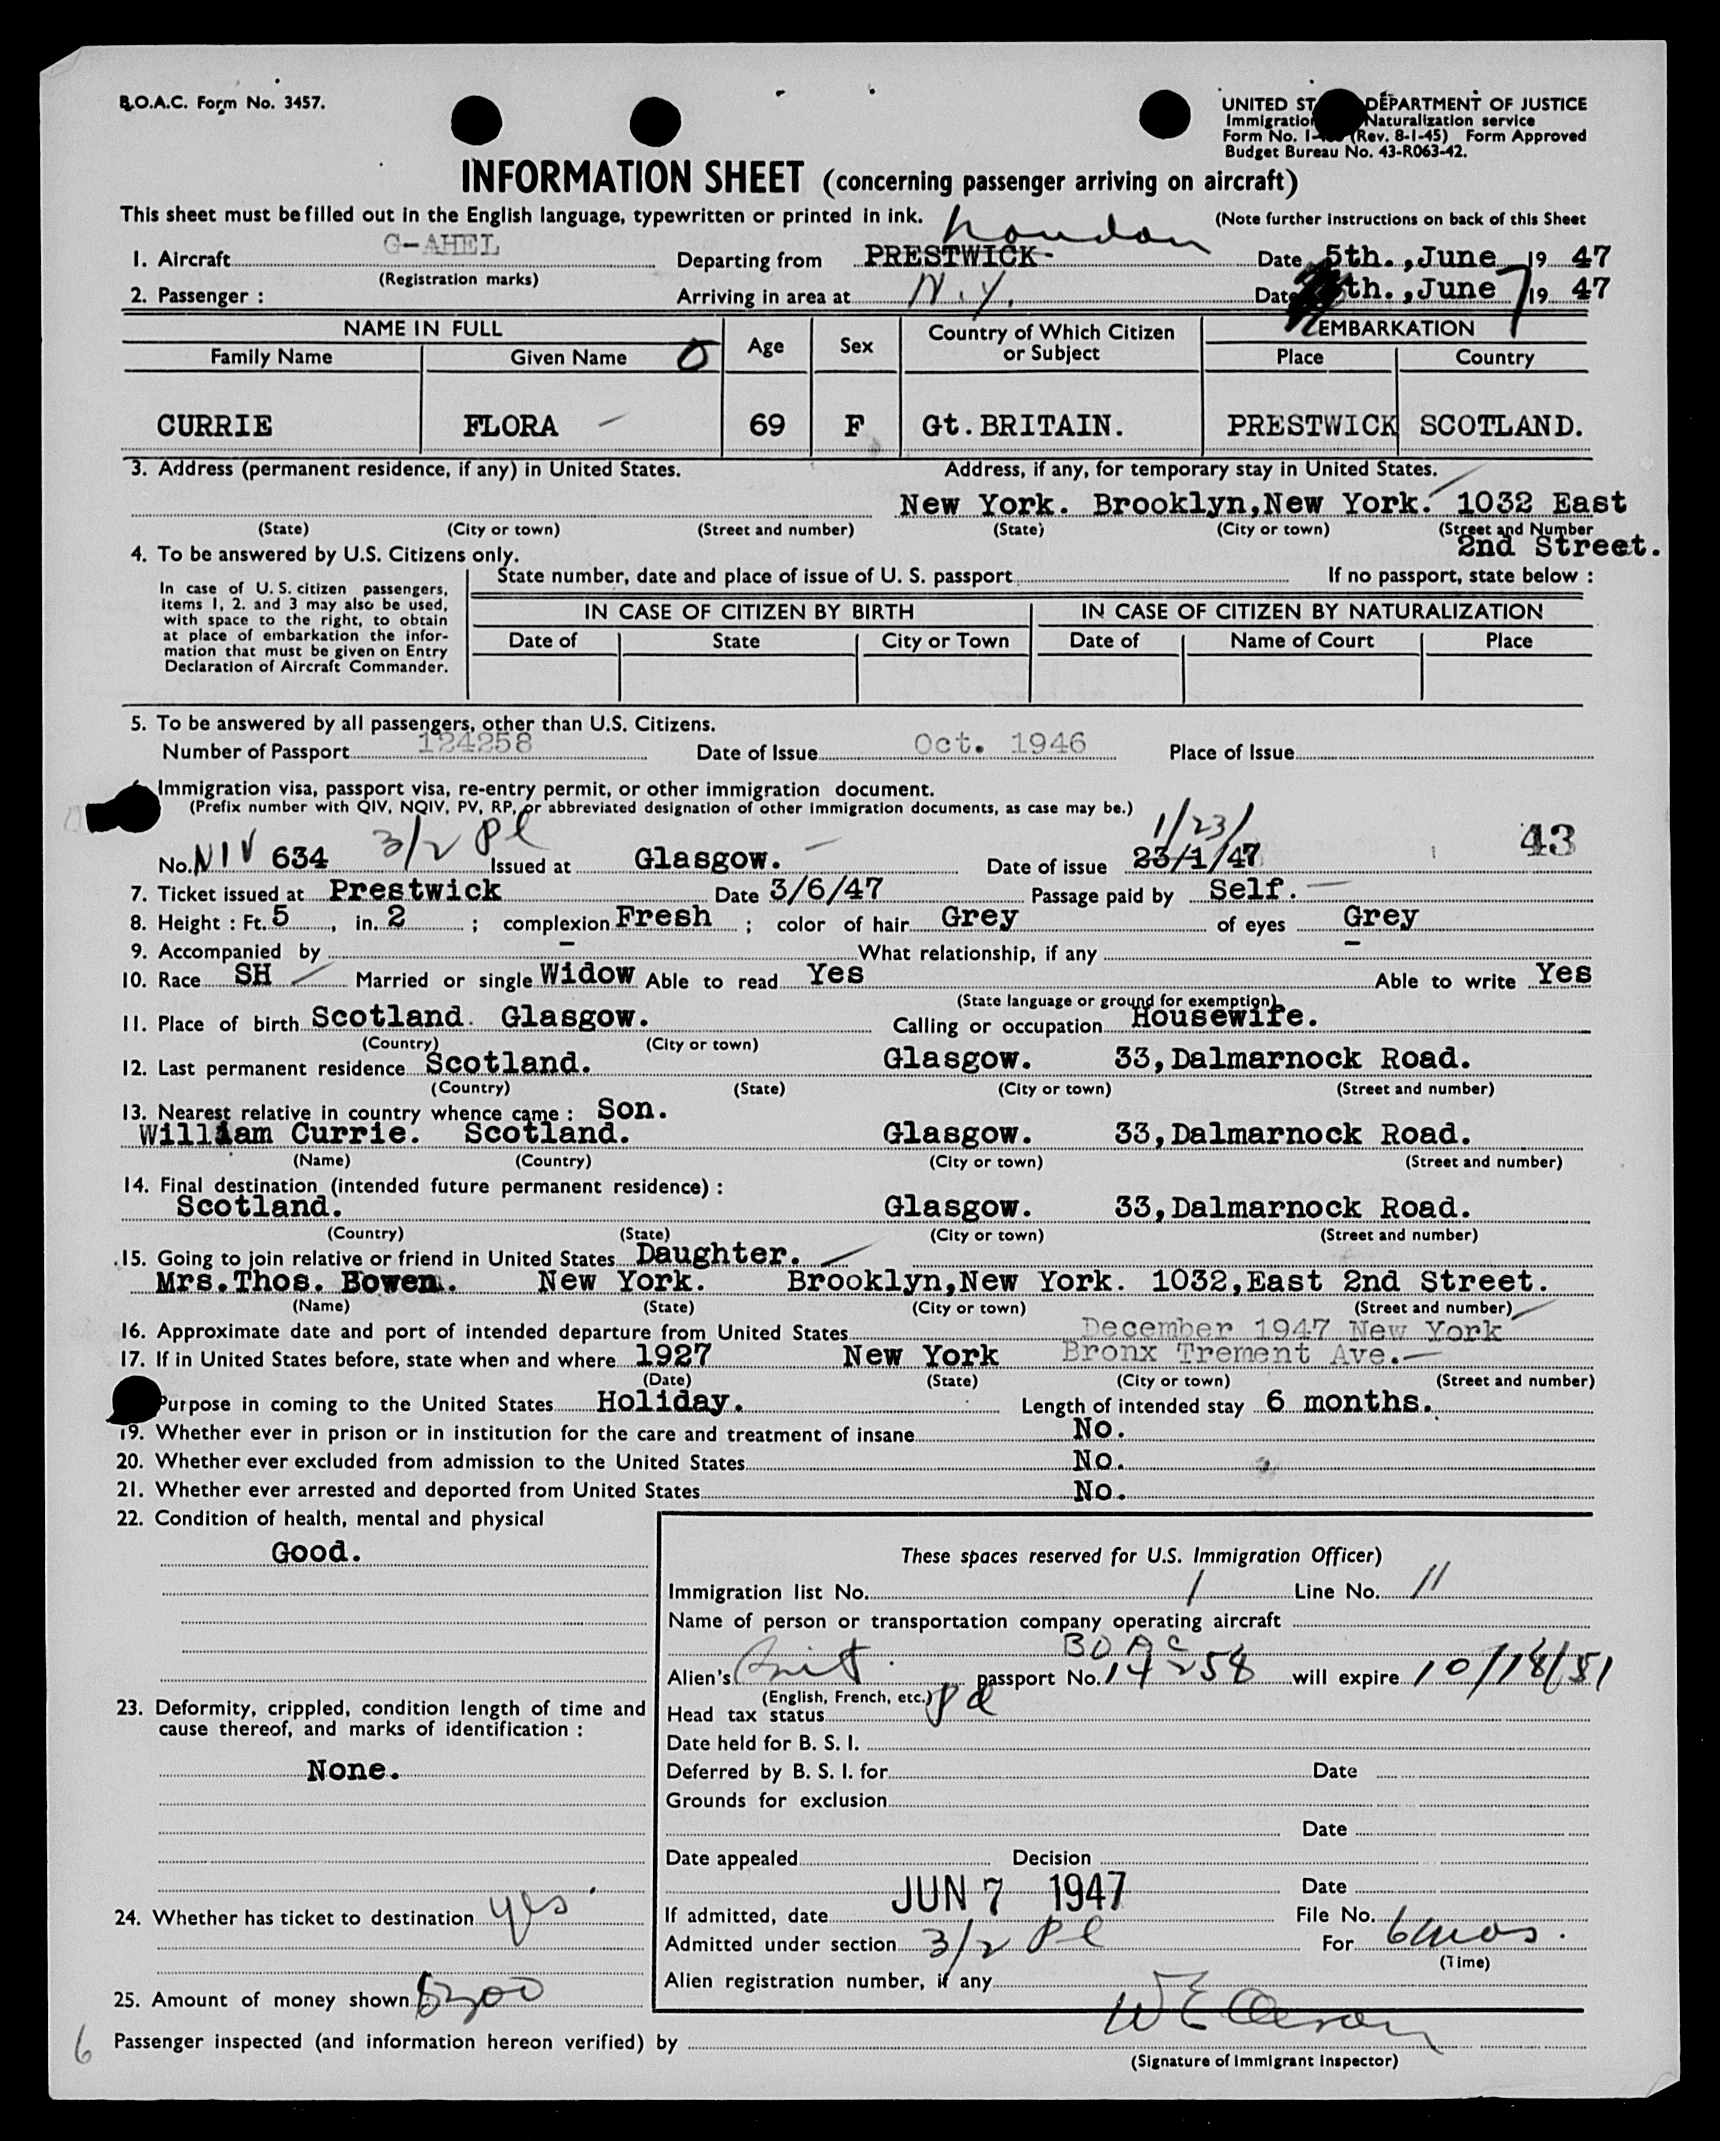 B.O.A.C. Form No. 3457.
UNITED ST DEPARTMENT OF JUSTICE
Immigration Naturalization service
Form No. I- (Rev. 8-1-45) Form Approved
Budget Bureau No. 43-R063-42.
INFORMATION SHEET (concerning passenger arriving on aircraft)
This sheet must be filled out in the English language, typewritten or printed in ink.
(Note further instructions on back of this Sheet
London
1. Aircraft G-AHEL Departing from PRESTWICK- Date 5th.,June 19 47
(Registration marks)
2. Passenger : Arriving in area at N.Y. Date 7 th.,June 19 47
NAME IN FULL Age Sex Country of Which Citizen or Subject EMBARKATION
Family Name Given Name Place Country
CURRIE FLORA 69 F Gt.BRITAIN. PRESTWICK SCOTLAND.
3. Address (permanent residence, if any) in United States. Address, if any, for temporary stay in United States.
New York. Brooklyn,New York. 1032 East
(State) (City or town) (Street and number) (State) (City or town) (Street and Number
2nd Street.
4. To be answered by U.S. Citizens only.
In case of U.S. citizen passengers, items 1, 2. and 3 may also be used, with space to the right, to obtain at place of embarkation the information that must be given on Entry Declaration of Aircraft Commander.
State number, date and place of issue of U. S. passport If no passport, state below :
IN CASE OF CITIZEN BY BIRTH IN CASE OF CITIZEN BY NATURALIZATION
Date of State City or Town Date of Name of Court Place
5. To be answered by all passengers, other than U.S. Citizens.
Number of Passport 124258 Date of Issue Oct. 1946 Place of Issue
Immigration visa, passport visa, re-entry permit, or other immigration document.
(Prefix number with QIV, NQIV, PV, RP, or abbreviated designation of other immigration documents, as case may be.)
1/23/
43
No. NIV 634 3/2 Pl Issued at Glasgow. Date of issue 23/1/47
7. Ticket issued at Prestwick Date 3/6/47 Passage paid by Self.
8. Height : Ft. 5 , in. 2 ; complexion Fresh ; color of hair Grey of eyes Grey
9. Accompanied by - What relationship, if any -
10. Race SH Married or single Widow Able to read Yes Able to write Yes
(State language or ground for exemption)
11. Place of birth Scotland. Glasgow. Calling or occupation Housewife.
(Country) (City or town)
12. Last permanent residence Scotland. Glasgow. 33,Dalmarnock Road.
(Country) (State) (City or town) (Street and number)
13. Nearest relative in country whence came : Son.
William Currie. Scotland. Glasgow. 33,Dalmarnock Road.
(Name) (Country) (City or town) (Street and number)
14. Final destination (intended future permanent residence) :
Scotland. Glasgow. 33,Dalmarnock Road.
(Country) (State) (City or town) (Street and number)
15. Going to join relative or friend in United States Daughter.
Mrs.Thos. Bowen. New York. Brooklyn,New York. 1032,East 2nd Street.
(Name) (State) (City or town) (Street and number)
16. Approximate date and port of intended departure from United States December 1947 New York
17. If in United States before, state when and where 1927 New York Bronx Trement Ave.
(Date) (State) (City or town) (Street and number)
Purpose in coming to the United States Holiday. Length of intended stay 6 months.
19. Whether ever in prison or in institution for the care and treatment of insane No.
20. Whether ever excluded from admission to the United States No.
21. Whether ever arrested and deported from United States No.
22. Condition of health, mental and physical
Good.
23. Deformity, crippled, condition length of time and
cause thereof, and marks of identification :
None.
24. Whether has ticket to destination yes
25. Amount of money shown $200
These spaces reserved for U.S. Immigration Officer)
Immigration list No. 1 Line No. 11
Name of person or transportation company operating aircraft
BOAC
Alien's Brit passport No. 124258 will expire 10/18/51
(English, French, etc.)
Head tax status pd
Date held for B. S. I.
Deferred by B. S. I. for Date
Grounds for exclusion
Date
Date appealed Decision
Date
If admitted, date JUN 7 1947 File No.
Admitted under section 3/2 Pl For 6 mos.
(Time)
Alien registration number, if any
6
Passenger inspected (and information hereon verified) by
(Signature of Immigrant Inspector)